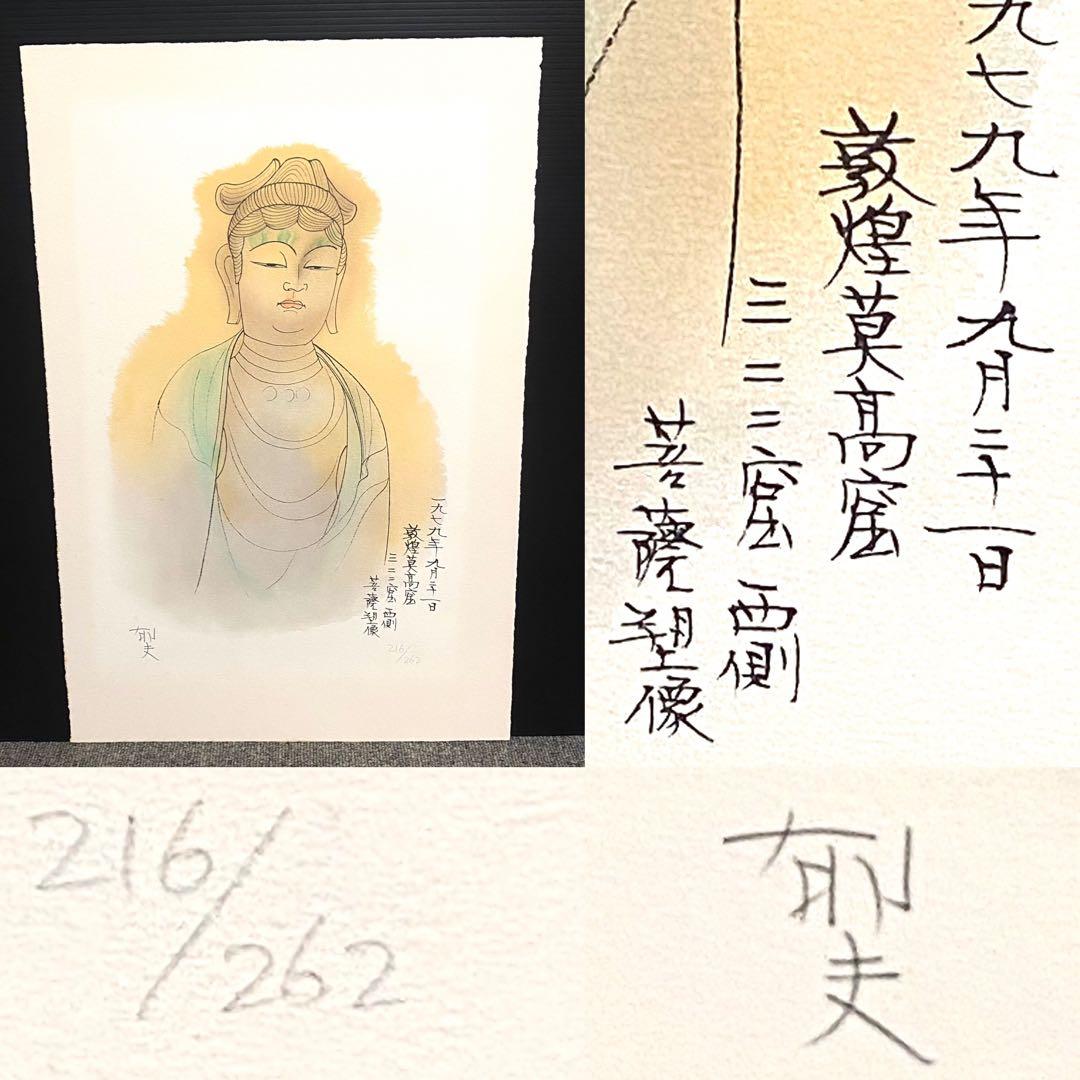 一九七九年九月二十一日
敦煌莫高窟
三二二窟 西側
菩薩塑像
郁夫
216/262
九七九年九月二十一日
敦煌莫高窟
三二二窟 西側
菩薩塑像
216/262
郁夫